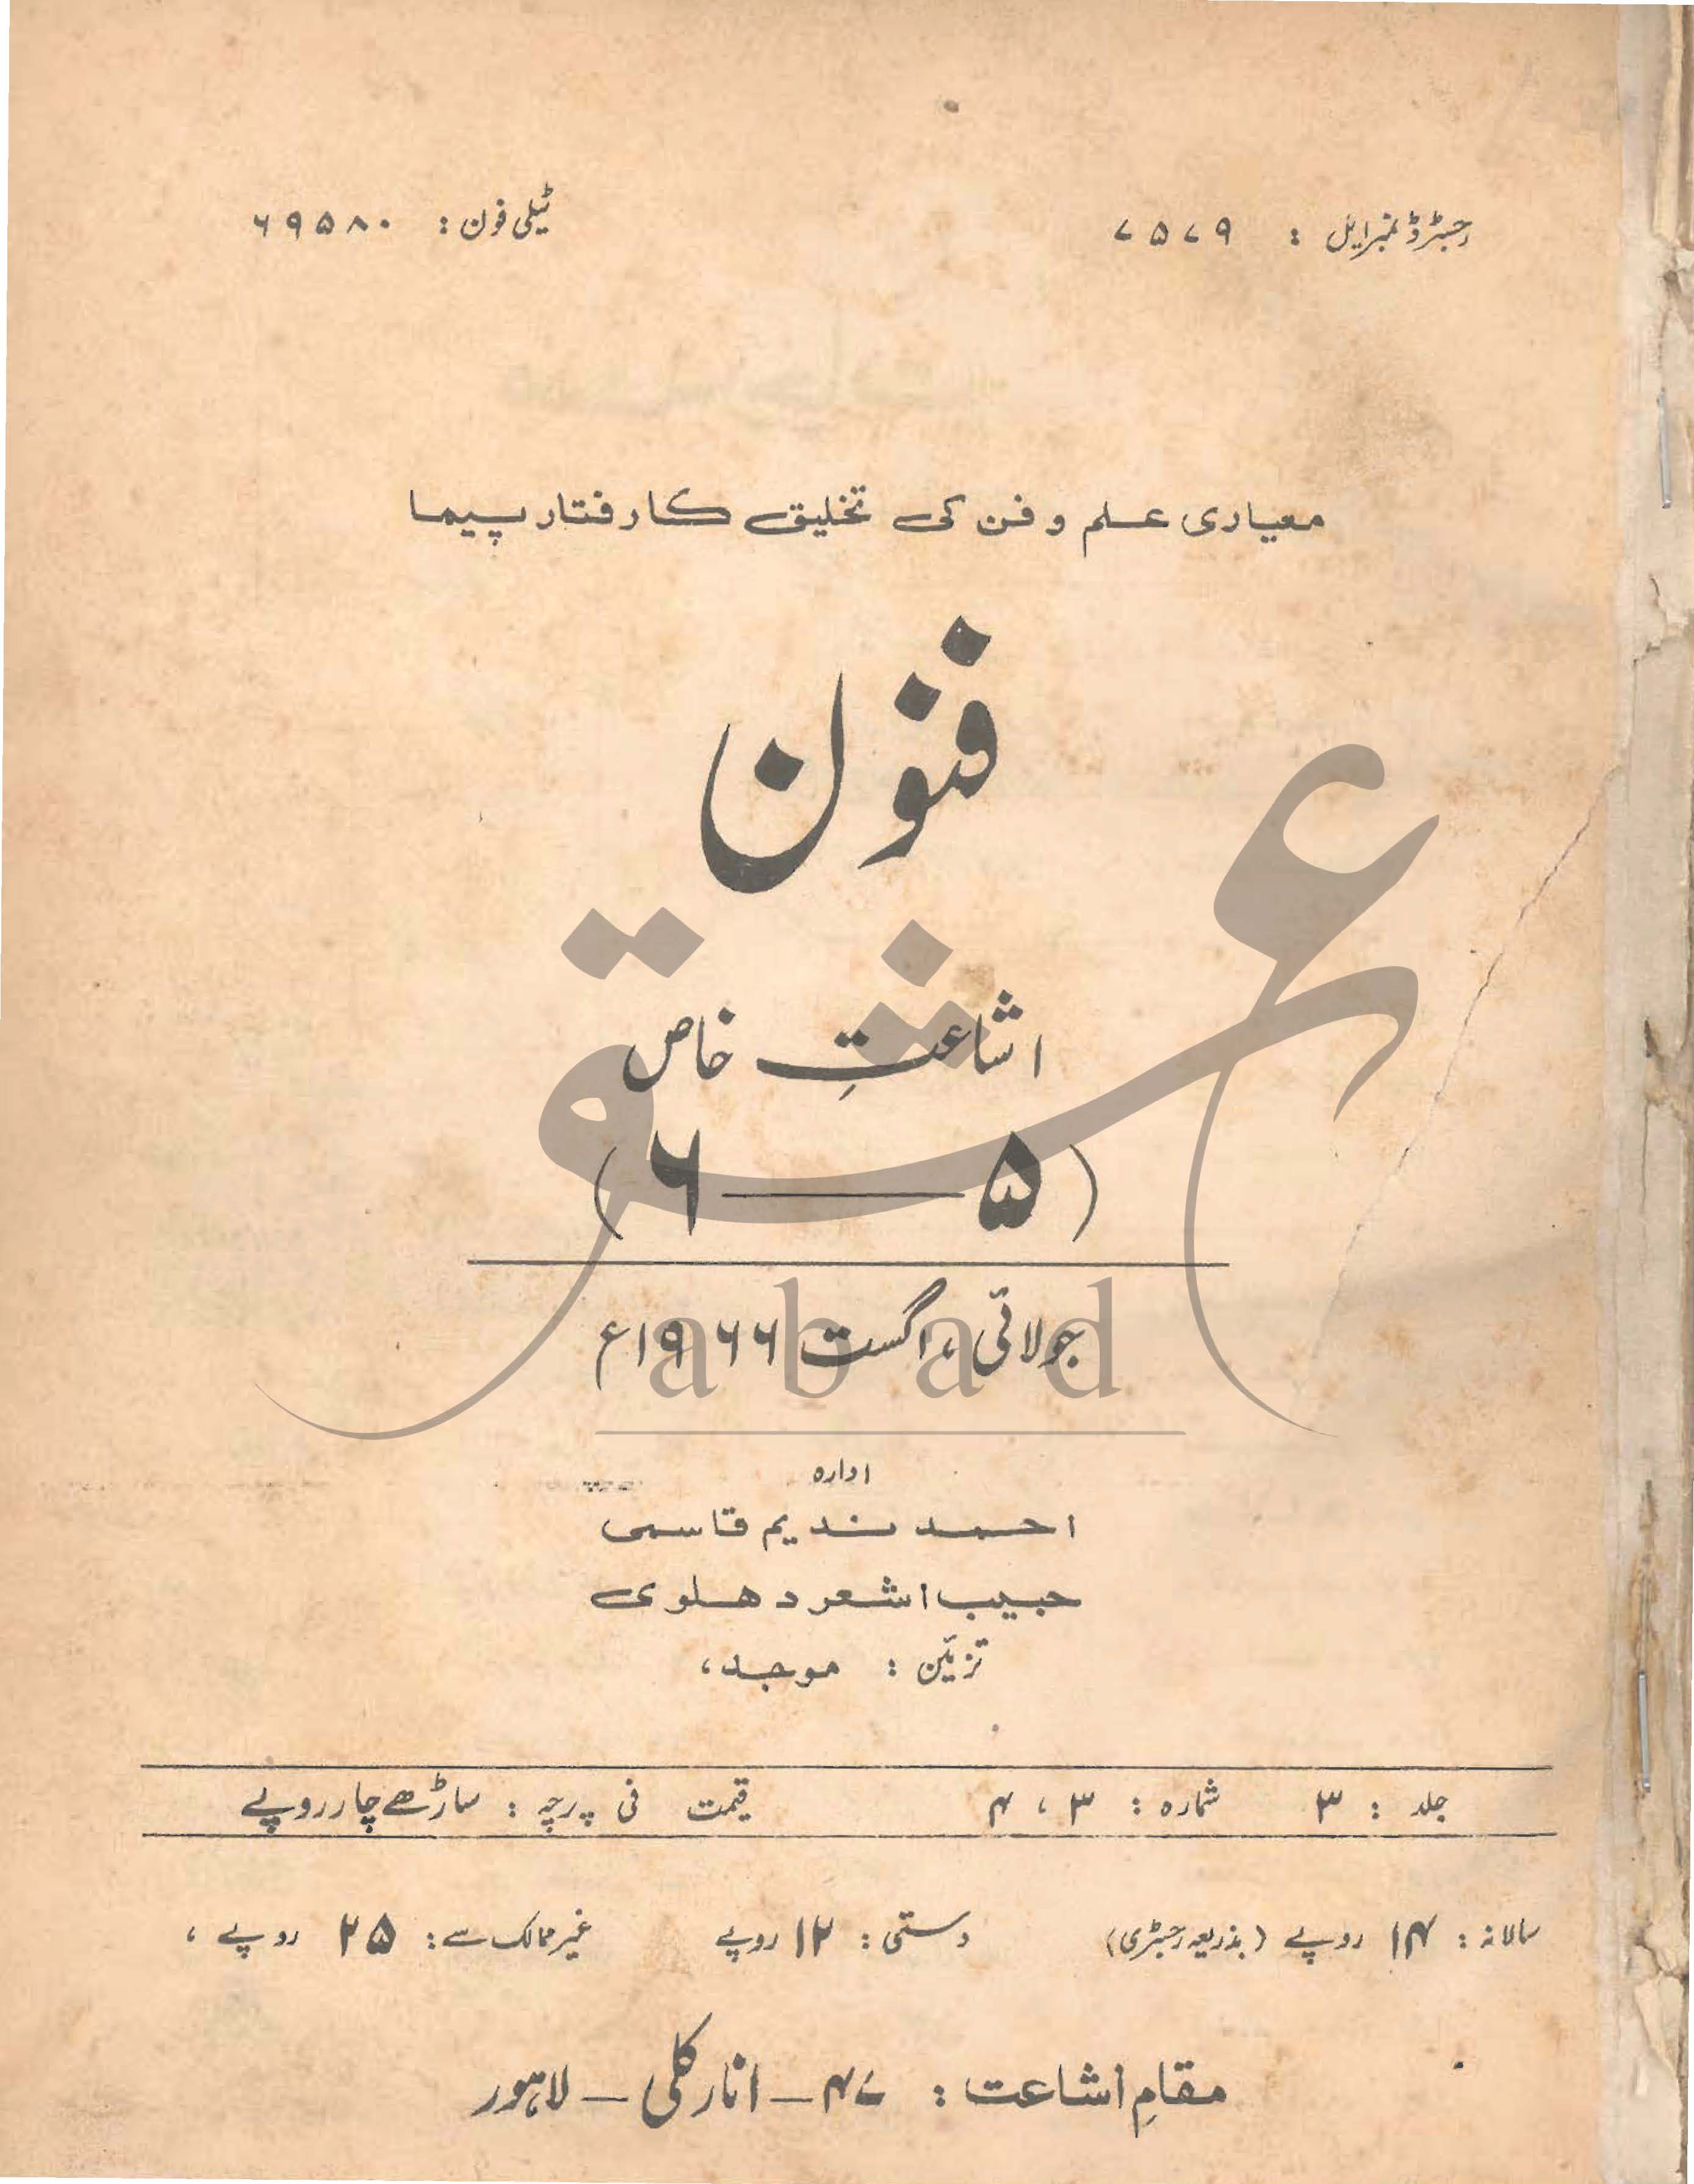 رجسٹرڈ نمبر ایل : ۷۵۷۹
ٹیلی فون : ۶۹۵۸۰
معیاری علم و فن کی تخلیق کا رفتار پیما
فنون
اشاعتِ خاص
(۵ — ۶)
جولائی، اگست ۱۹۶۶ء
عشق
abad
ادارہ
احمد ندیم قاسمی
حبیب اشعر دھلوی
تزئین : موجد،
جلد : ۳ شمارہ : ۳ ، ۴ قیمت فی پرچہ : ساڑھے چار روپے
سالانہ : ۱۴ روپے (بذریعہ رجسٹری) دستی : ۱۲ روپے غیر ممالک سے : ۲۵ روپے ،
مقامِ اشاعت : ۴۷ - انارکلی - لاہور